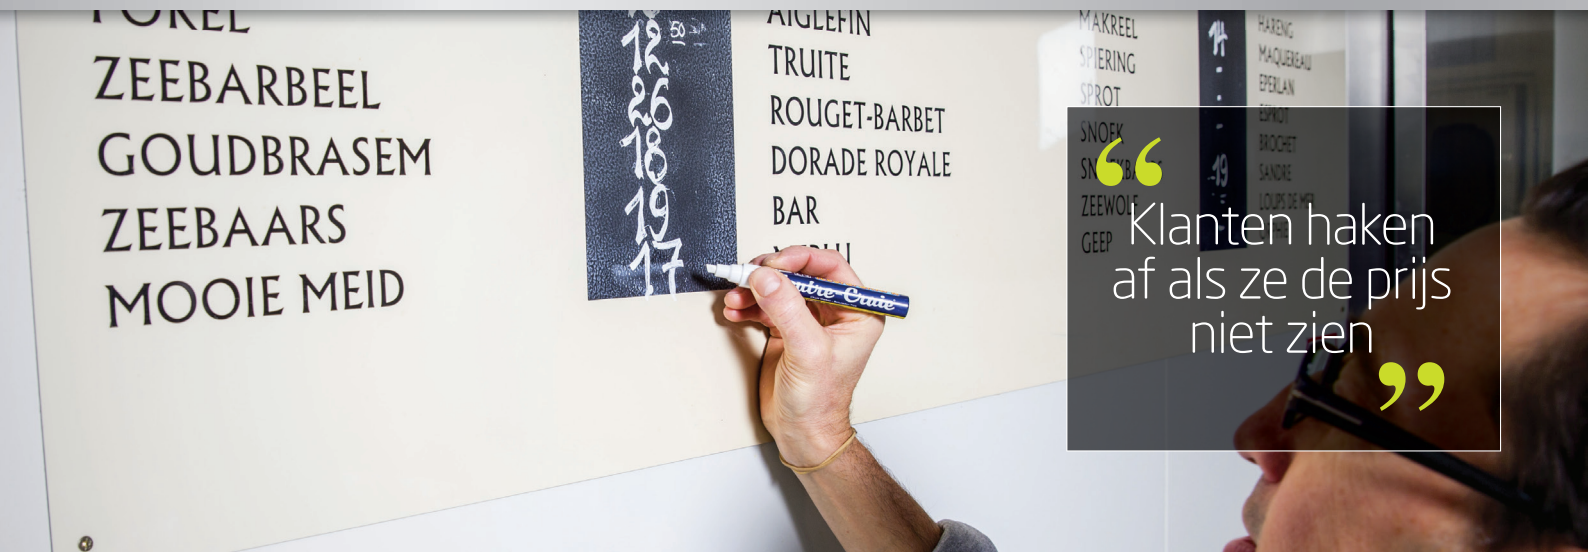 ZEEBARBEEL
GOUDBRASEM
ZEEBAARS
MOOIE MEID
12 50
26
18
19
17
AIGLEFIN
TRUITE
ROUGET-BARBET
DORADE ROYALE
BAR
MAKREEL
SPIERING
SPROT
SNOEK
ZEEWOLF
GEEP
14
-
-
-
19
HARENG
MAQUEREAU
EPERLAN
ESPROT
BROCHET
SANDRE
LOUPS DE MER
“
Klanten haken
af als ze de prijs
niet zien
”